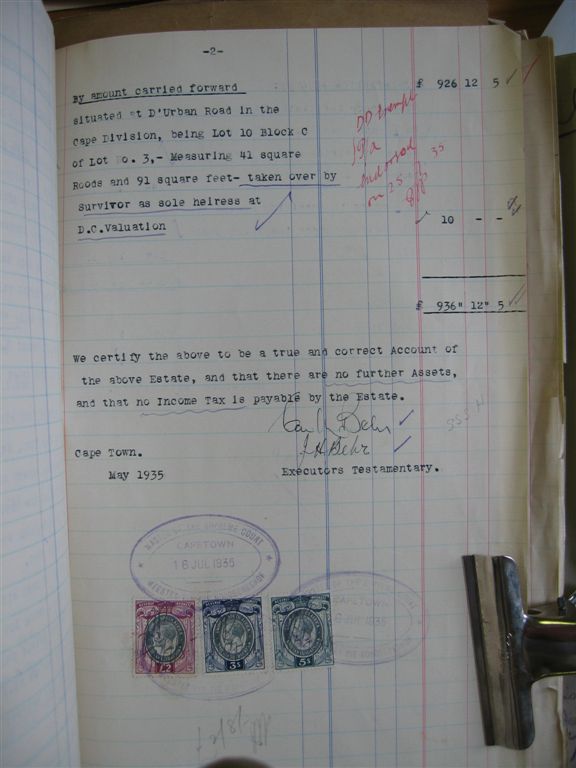 -2-
By amount carried forward £ 926 12 5
situated at D'Urban Road in the
Cape Division, being Lot 10 Block C
of Lot No. 3,- Measuring 41 square
Roods and 91 square feet- taken over by
Survivor as sole heiress at
D.C.Valuation 10 - -
£ 936" 12" 5
We certify the above to be a true and correct Account of
the above Estate, and that there are no further Assets,
and that no Income Tax is payable by the Estate.
Behr
J H Behr
Cape Town.
May 1935 Executors Testamentary.
MASTER OF THE SUPREME COURT
CAPETOWN
16 JUL 1935
CAPETOWN
JUL 1935
£2 3s 5s